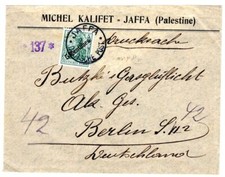 MICHEL KALIFET - JAFFA (Palestine)
Drucksache
137*
JAFFA
Butzke's Gasglühlicht
Akt. Ges.
42
42
Berlin S.
Deutschland